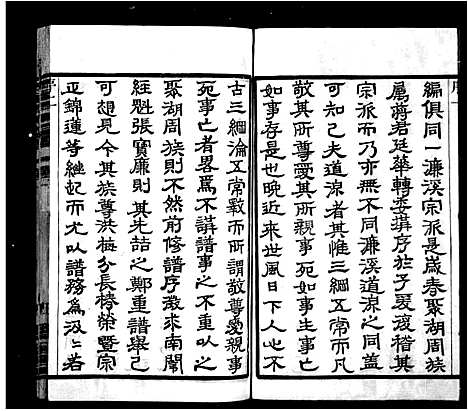 編俱同一濂溪宗派是歲春聚湖周族
屬蔣君廷華轉委蕱序於予爰複稽其
宗派而知亦無不同濂溪道凉之同蓋
可知己夫道凉者其惟三綱五常則
敬其所尊愛其所親事死如事生事亡
如事存是也晚近來世風日下人心不
古三綱淪五常斁而所謂敬尊愛親事
死事亡者畧焉不講譜事之不重久矣
聚湖周族則不然前修譜序徵求南闈
經魁張寶廉則其先喆之鄭重譜舉已
可想見今其族尊洪梅分長椿榮暨宗
正錦蓮等繼起而尤以譜務為汲汲若
序二